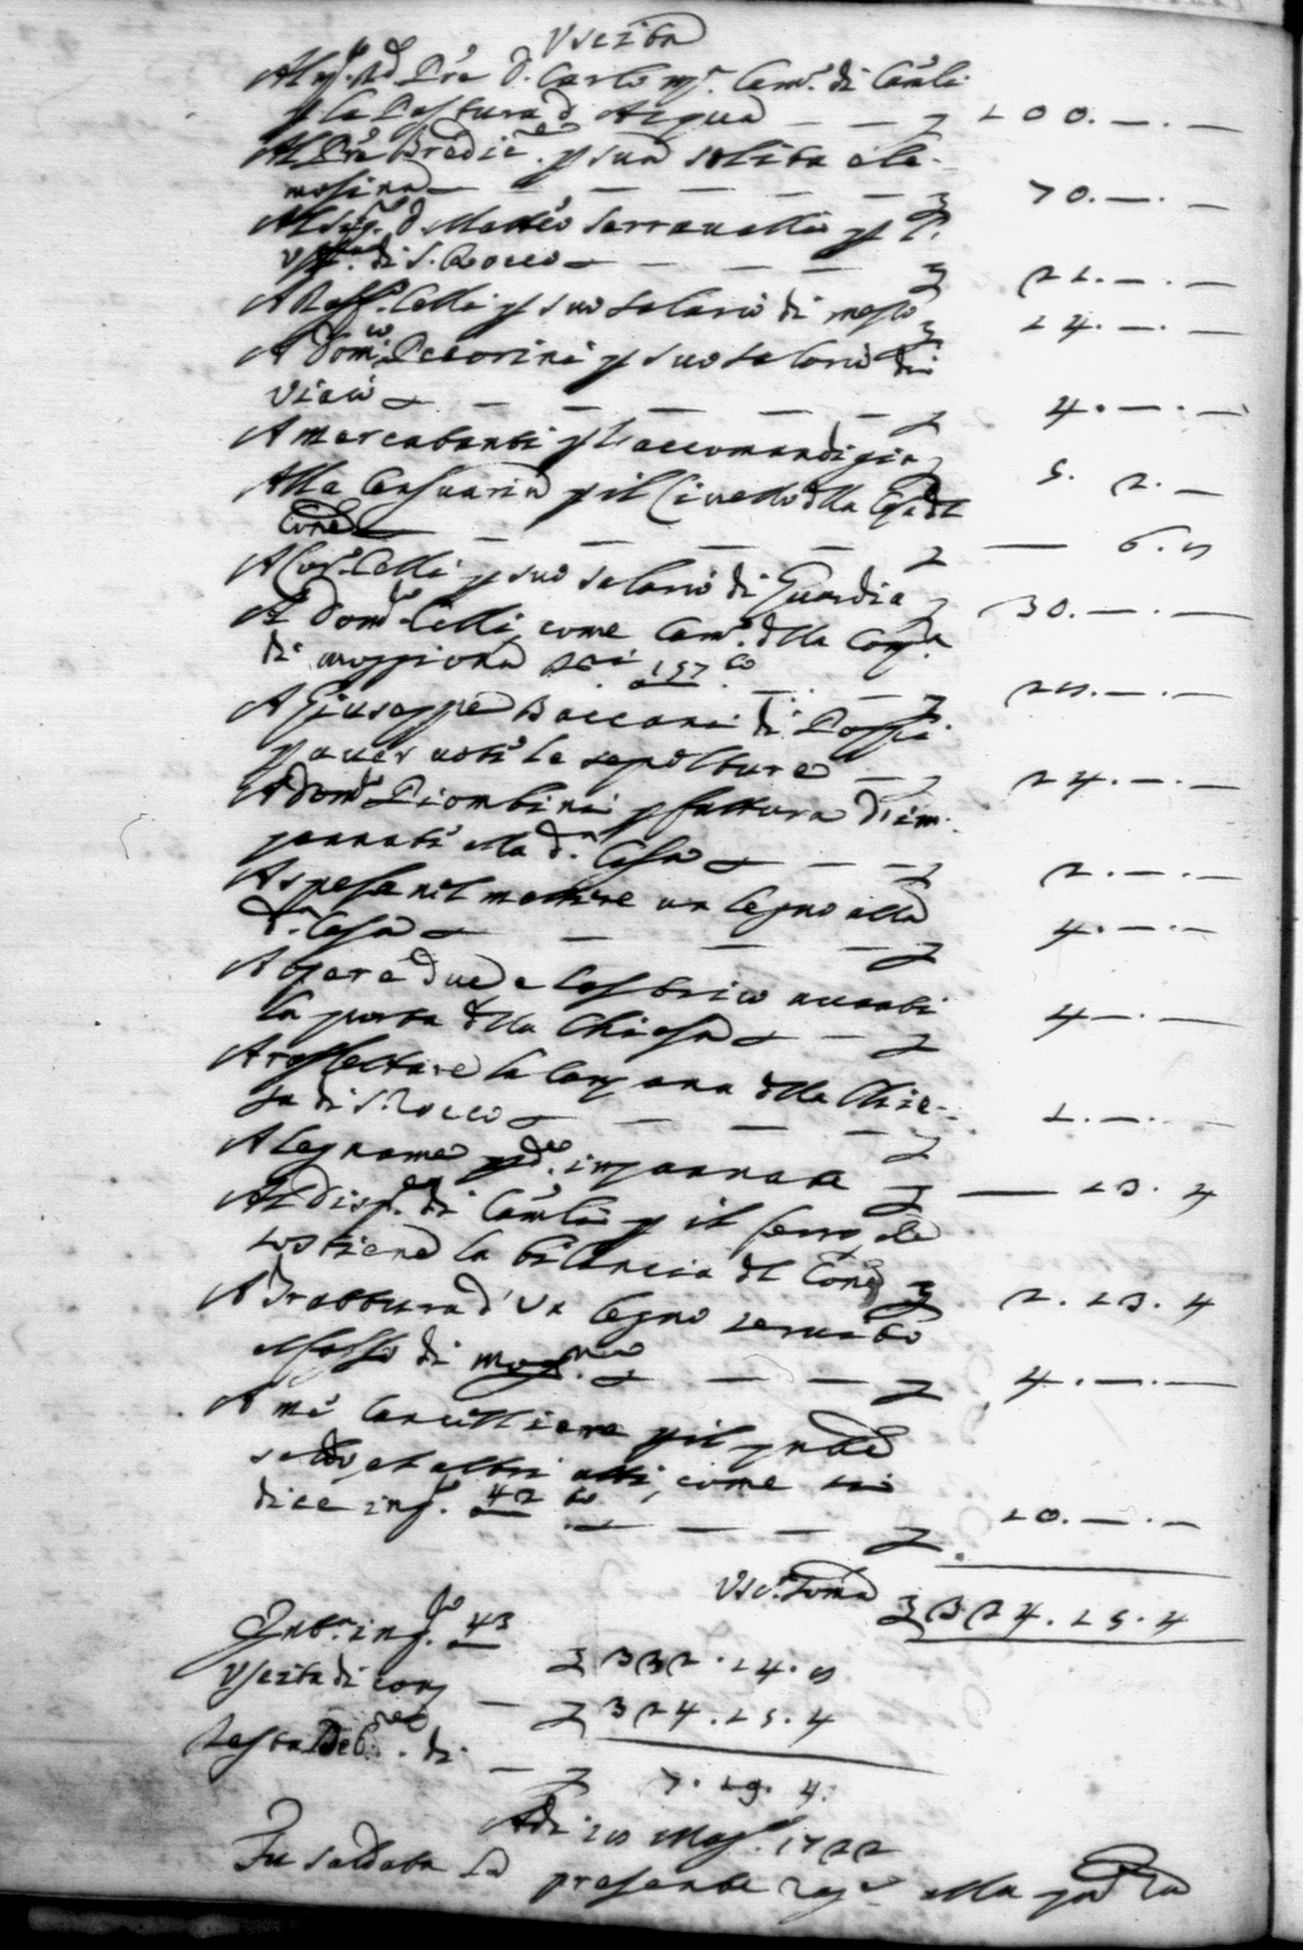 Uscita
Al M.to R.d P're D. Carlo M.a Cam.o di Camli
p la Pastura d'Acqua — — £ 100. —. —
Al P're Predic.re p sua solita ele-
mosina — — — — — £ 70. —. —
Al Sig.r D. Matteo Serravalli p l'
Uff.ra di S. Rocco — — — — £ 21. —. —
A Raff. Celli p suo salario di messo £ 14. —. —
A Dom.co Pecorini p suo salario di
Viaio — — — — — £ 4. —. —
A Mercatanti p l'accomandigia £ 5. 2. —
Alla Censuaria p il livello dlla Casa dl
Cone — — — — £ — 6. 8
A Celli p suo salario di Guardia £ 30. —. —
A Dom.co Celli come Cam.o dlla Comp.a
di Moggiona 157 to — — £ 28. —. —
A Giuseppe Baccani di Poppi
p aver voti le sepolture — £ 24. —. —
A Dom.co Piombini p fattura d'im-
pannate alla d.a Casa — — £ 2. —. —
A spese nel mettere un legno alla
d.a Casa — — — — £ 4. —. —
A opere due e lastrico avanti
la porta dlla Chiesa — — £ 4 —. —
A rassettare la campana dlla Chie-
sa di S. Rocco — — — — £ 1. —. —
A legname p d.e impannate £ — 13. 4
Al Disp.a di Camli p il ferro, che
sostiene la bilancia dl Cone £ 2. 13. 4
A Trattura d'un legno servito
al fosso di Mogg.na — — — £ 4. —. —
A me Cancelliere p il pnte
saldo, et altri atti, come si
dice in q.o 42 to — — — £ 10. —. —
Usc.a Soma £ 324. 15. 4
Entr.a in q.o 43 £ 332. 14. 8
Uscita di cont — £ 324. 15. 4
Resta Deb.re di — £ 7. 19. 4.
Adi 28 Mag.o 1722
Fu saldata la presente rag.e alla pnza